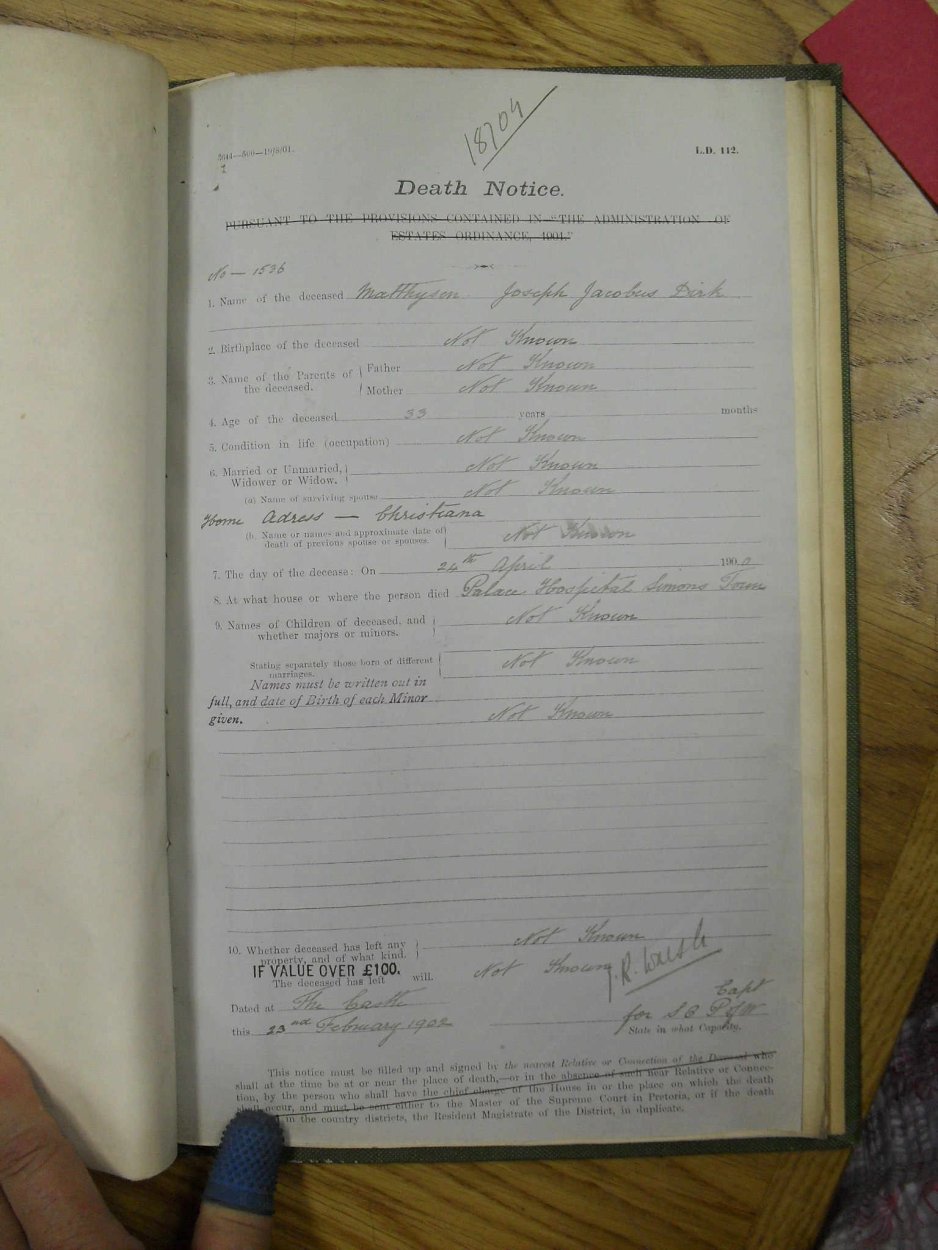 18704
2644—500—19/8/01.
L.D. 112.
Death Notice.
PURSUANT TO THE PROVISIONS CONTAINED IN "THE ADMINISTRATION OF
ESTATES ORDINANCE, 1901."
No — 1536
1. Name of the deceased Matthysen Joseph Jacobus Dirk
2. Birthplace of the deceased Not Known
3. Name of the Parents of the deceased. Father Not Known
Mother Not Known
4. Age of the deceased 33 years months
5. Condition in life (occupation) Not Known
6. Married or Unmarried, Widower or Widow. Not Known
(a) Name of surviving spouse Not Known
Home Adress — Christiana
(b. Name or names and approximate date of death of previous spouse or spouses. Not Known
7. The day of the decease: On 24th April 1900
8. At what house or where the person died Palace Hospital Simons Town
9. Names of Children of deceased, and whether majors or minors. Not Known
Stating separately those born of different marriages. Not Known
Names must be written out in
full, and date of Birth of each Minor
given. Not Known
10. Whether deceased has left any property, and of what kind. Not Known
IF VALUE OVER £100.
The deceased has left will. Not Known
J.R. Walsh
Dated at The Castle Capt
this 23nd February 1902 for S O P of W
State in what Capacity.
This notice must be filled up and signed by the nearest Relative or Connection of the Deceased who
shall at the time be at or near the place of death,—or in the absence of such near Relative or Connec-
tion, by the person who shall have the chief charge of the House in or the place on which the death
shall occur, and must be sent either to the Master of the Supreme Court in Pretoria, or if the death
in the country districts, the Resident Magistrate of the District, in duplicate.